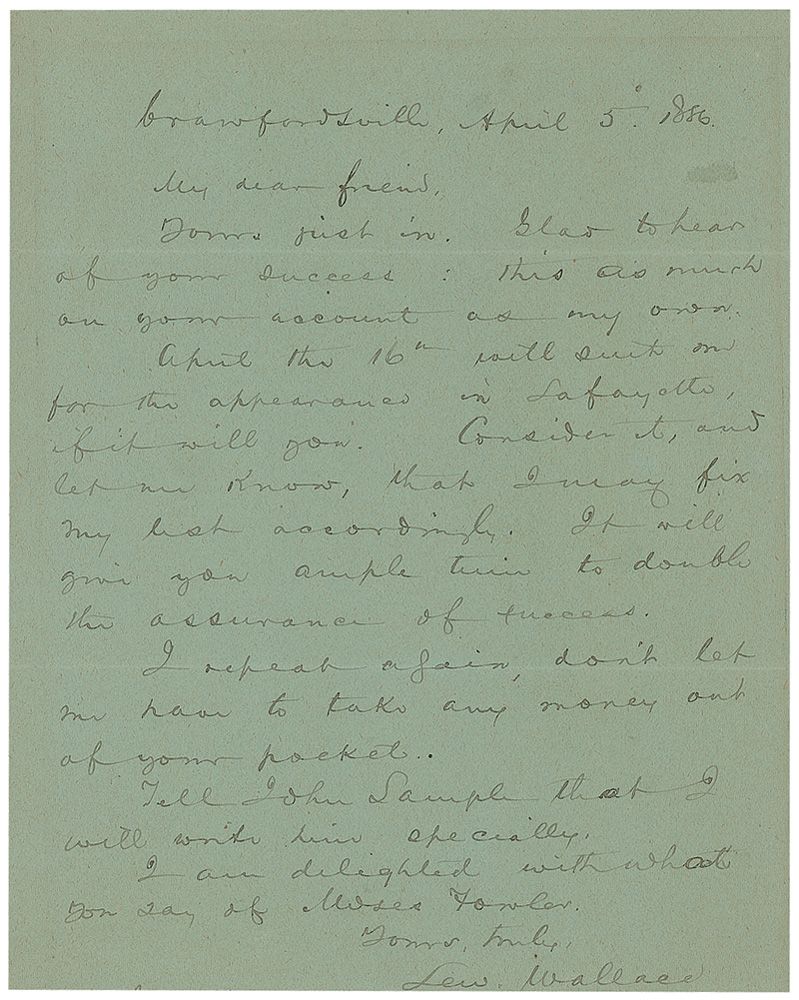 Crawfordsville, April 5. 1886.
My dear friend,
Yours just in. Glad to hear
of your success : this as much
on your account as my own.
April the 16th will suit me
for the appearance in Lafayette,
if it will you. Consider it, and
let me know, that I may fix
my list accordingly. It will
give you ample time to double
the assurance of success.
I repeat again, don't let
me have to take any money out
of your pocket..
Tell John Sample that I
will write him specially.
I am delighted with what
you say of Moses Fowler.
Yours, truly,
Lew. Wallace